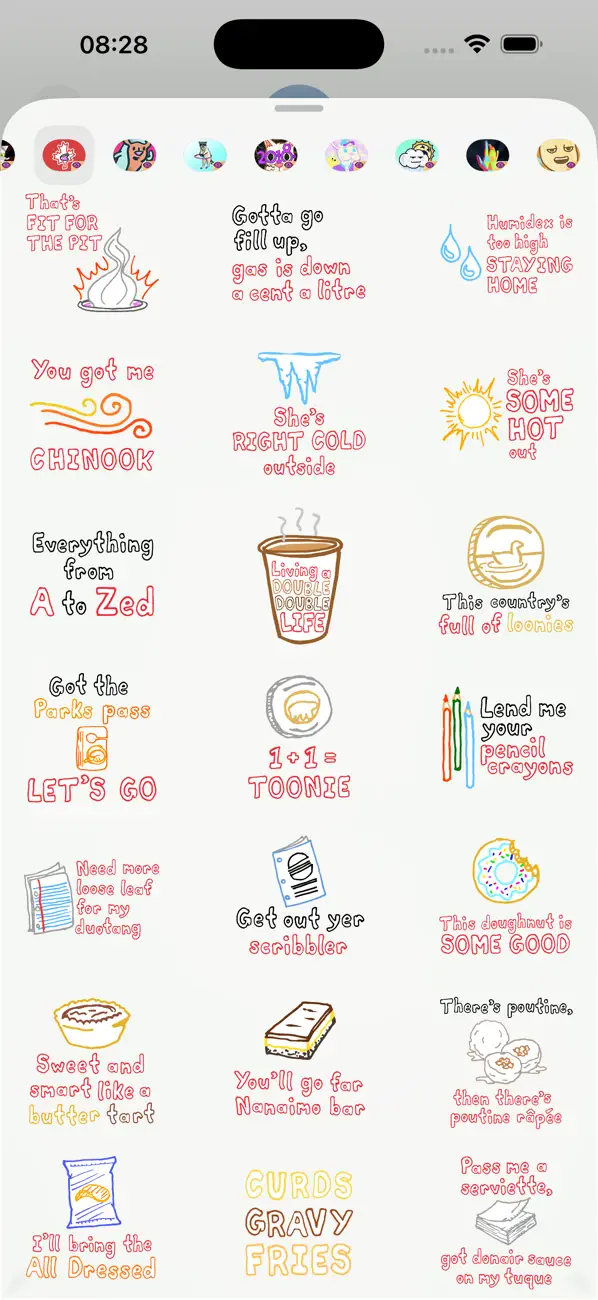 08:28
2018
That's
FIT FOR
THE PIT
Gotta go
fill up,
gas is down
a cent a litre
Humidex is
too high
STAYING
HOME
You got me
CHINOOK
She's
RIGHT COLD
outside
She's
SOME
HOT
out
Everything
from
A to Zed
Living a
DOUBLE
DOUBLE
LIFE
This country's
full of loonies
Got the
Parks pass
LET'S GO
1+1=
TOONIE
Lend me
your
pencil
crayons
Need more
loose leaf
for my
duotang
Get out yer
scribbler
This doughnut is
SOME GOOD
Sweet and
smart like a
butter tart
You'll go far
Nanaimo bar
There's poutine,
then there's
poutine râpée
I'll bring the
All Dressed
CURDS
GRAVY
FRIES
Pass me a
serviette,
got donair sauce
on my tuque